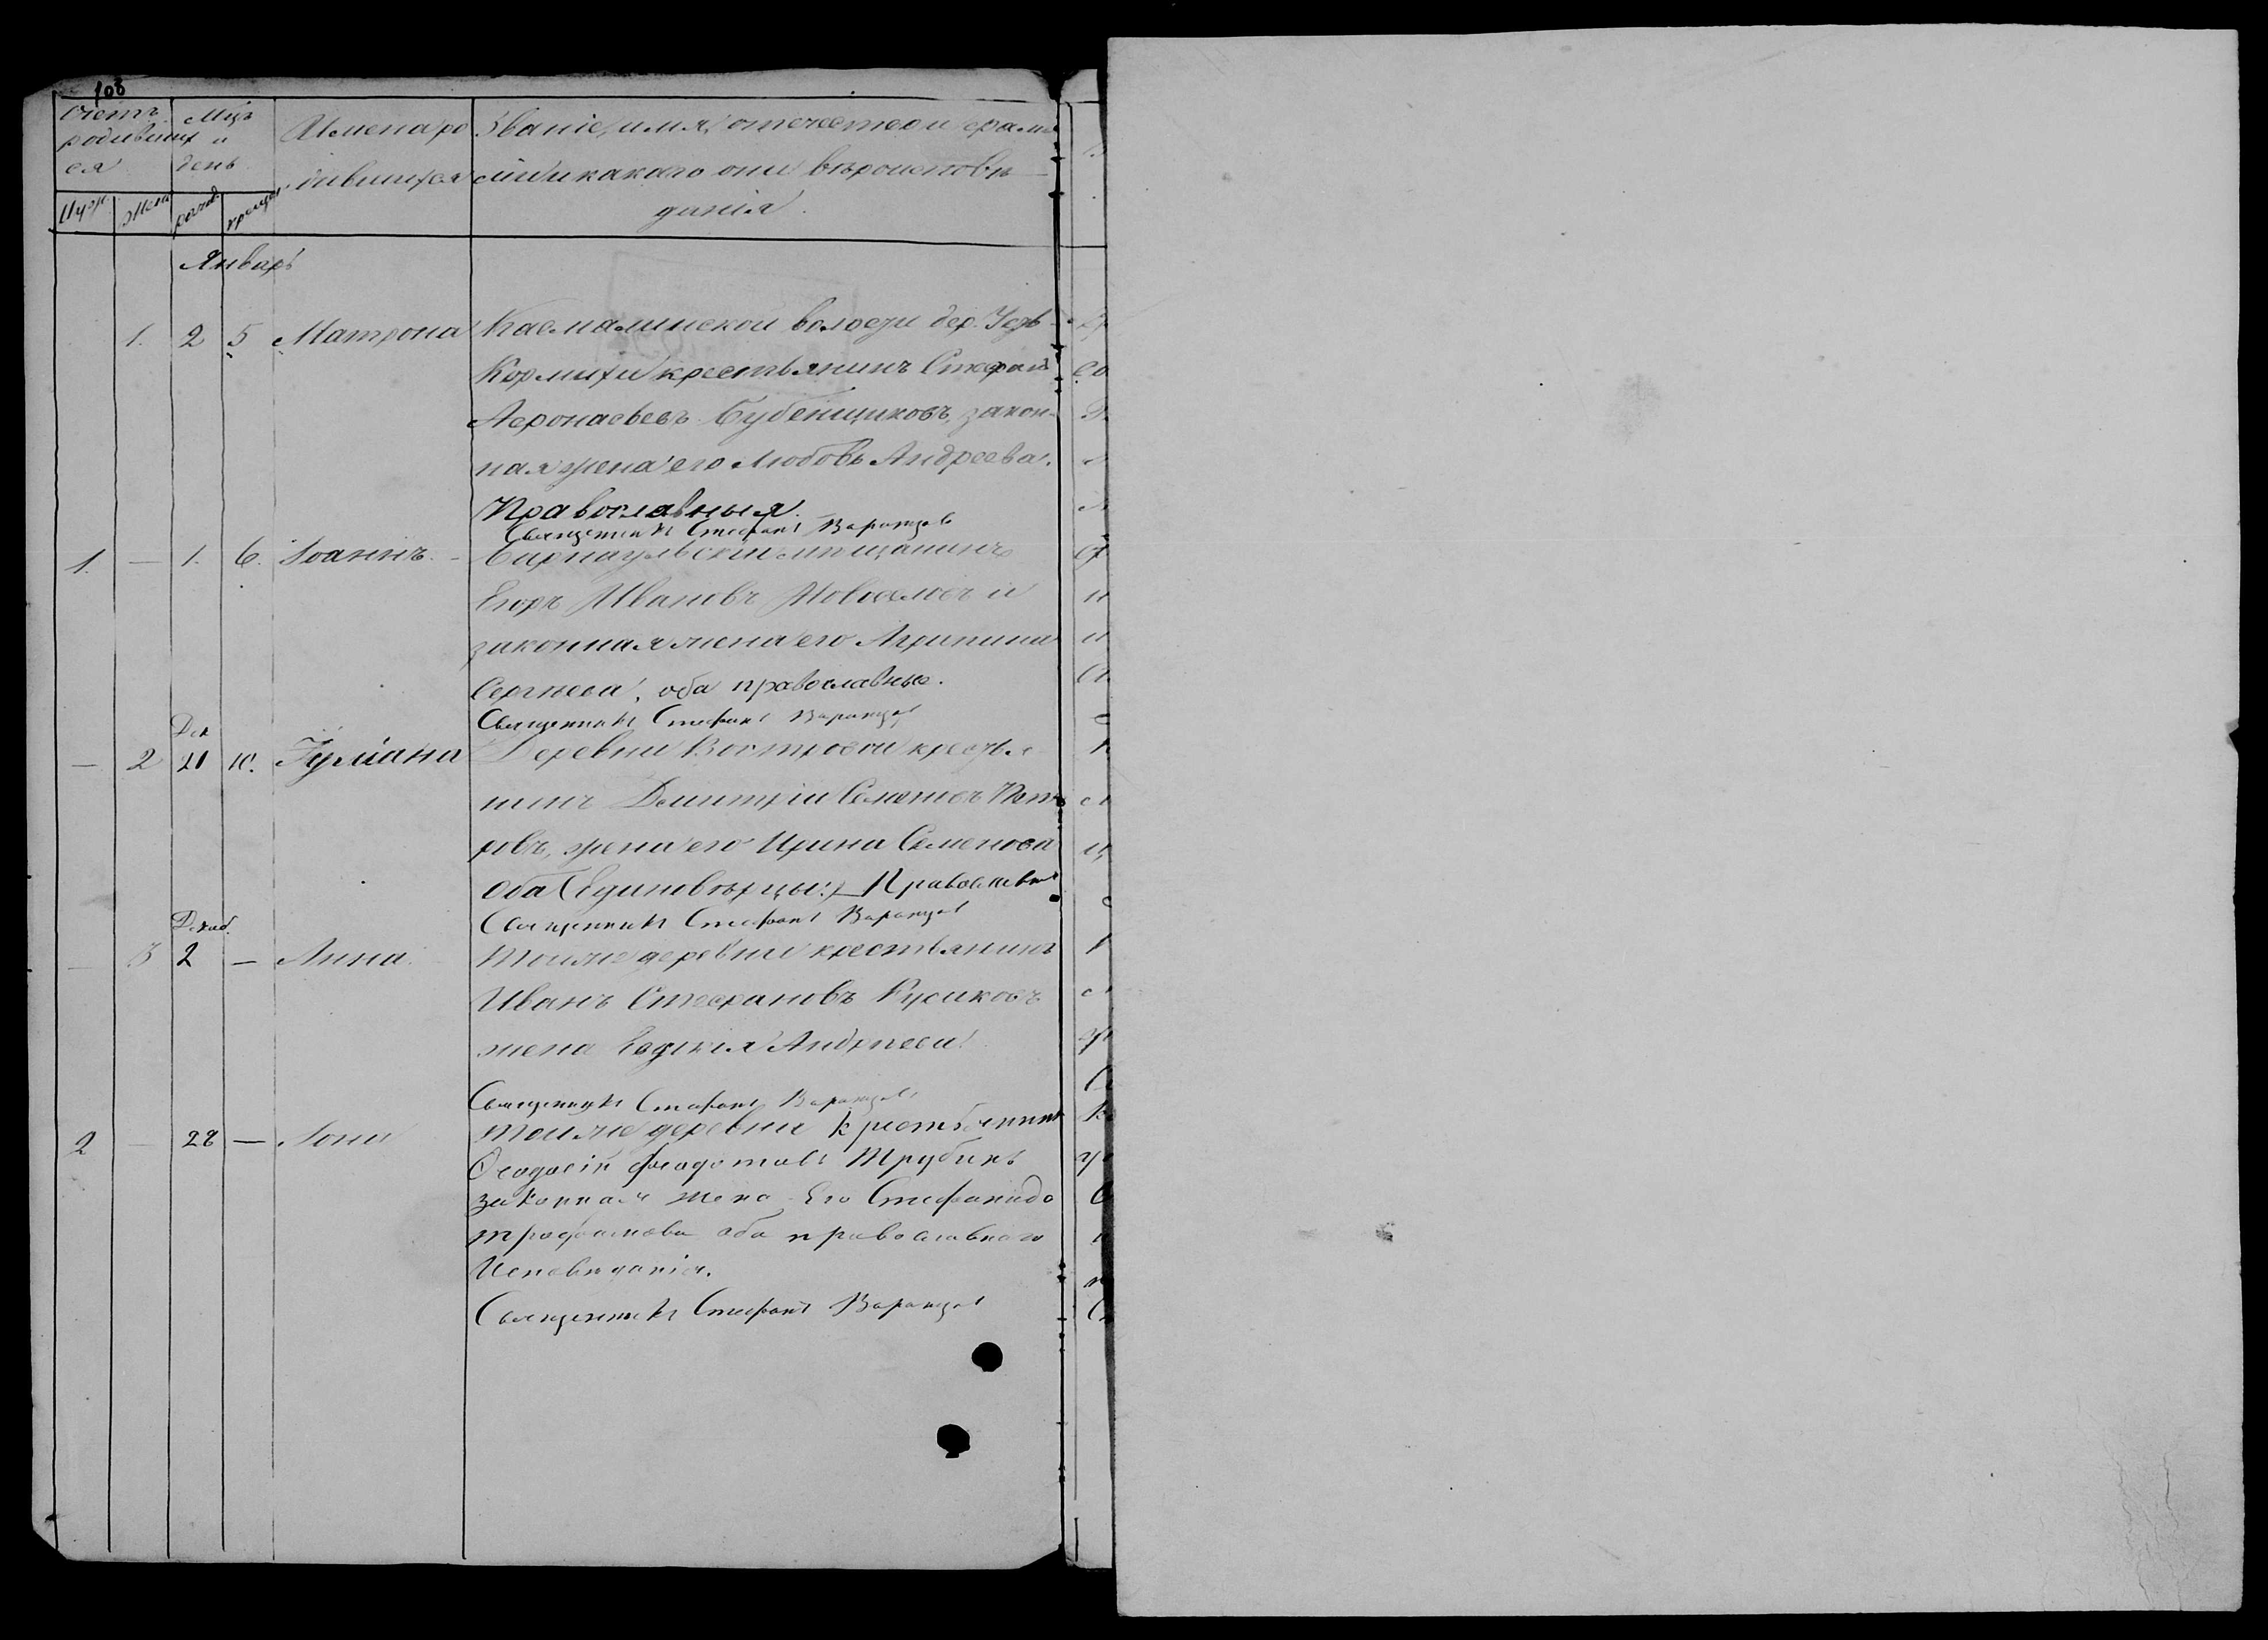 108
Счетъ родившихся
Мцъ и день
Муж. Жен. рожд. крещен.
Имена родившихся
Званіе, имя, отчество и фами-
лія и какаго они вѣроисповѣ-
данія.
Январь
1. 2 5 Матрона Касмалинской волости дер. Усть-
Кормихи крестьянинъ Стефанъ
Афонасьевъ Бубенщиковъ, закон-
ная жена его Любовь Андреева.
Православныя.
Священникъ Стефанъ
1. — 1. 6. Іоаннъ. Барнаульскій мѣщанинъ
Егоръ Ивановъ и
законная жена его Агрипина
Сергѣева, оба православные.
Священникъ Стефанъ
Дек
— 2 21 10. Іуліана Деревни Востровой крестья-
нинъ Дмитрій Семеновъ Пет-
ровъ, жена его Ирина Семенова
оба (Единовѣрцы:) Православныя
Священникъ Стефанъ
Декаб.
— 3 2 — Анна. Тойже деревни крестьянинъ
Иванъ Стефановъ
жена Андреева
Священникъ Стефанъ
2 — 28 — Іона Тойже деревни крестьянинъ
Феодосій Федотовъ Трубинъ
законная жена Его Стефанида
Трофимова оба православнаго
Исповѣданія.
Священникъ Стефанъ